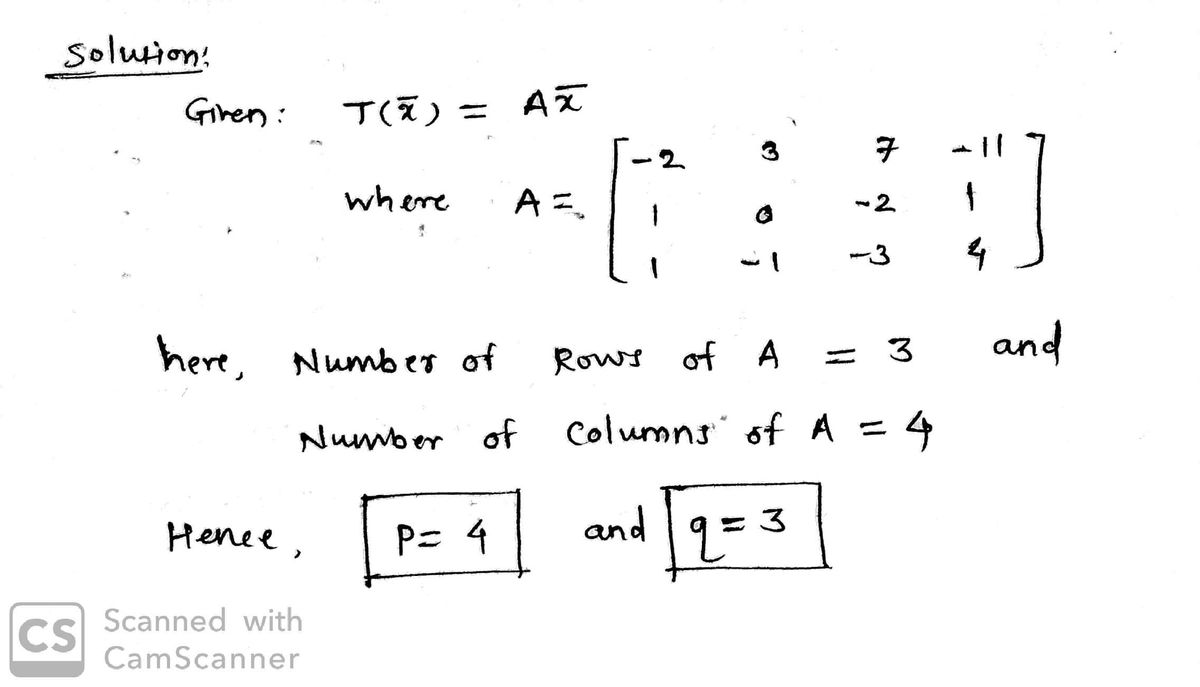 Solution:
Given: T(x̄) = Ax̄
where A = [ -2 3 7 -11
1 0 -2 1
1 -1 -3 4 ]
here, Number of Rows of A = 3 and
Number of Columns of A = 4
Hence, P = 4 and q = 3
CS Scanned with
CamScanner